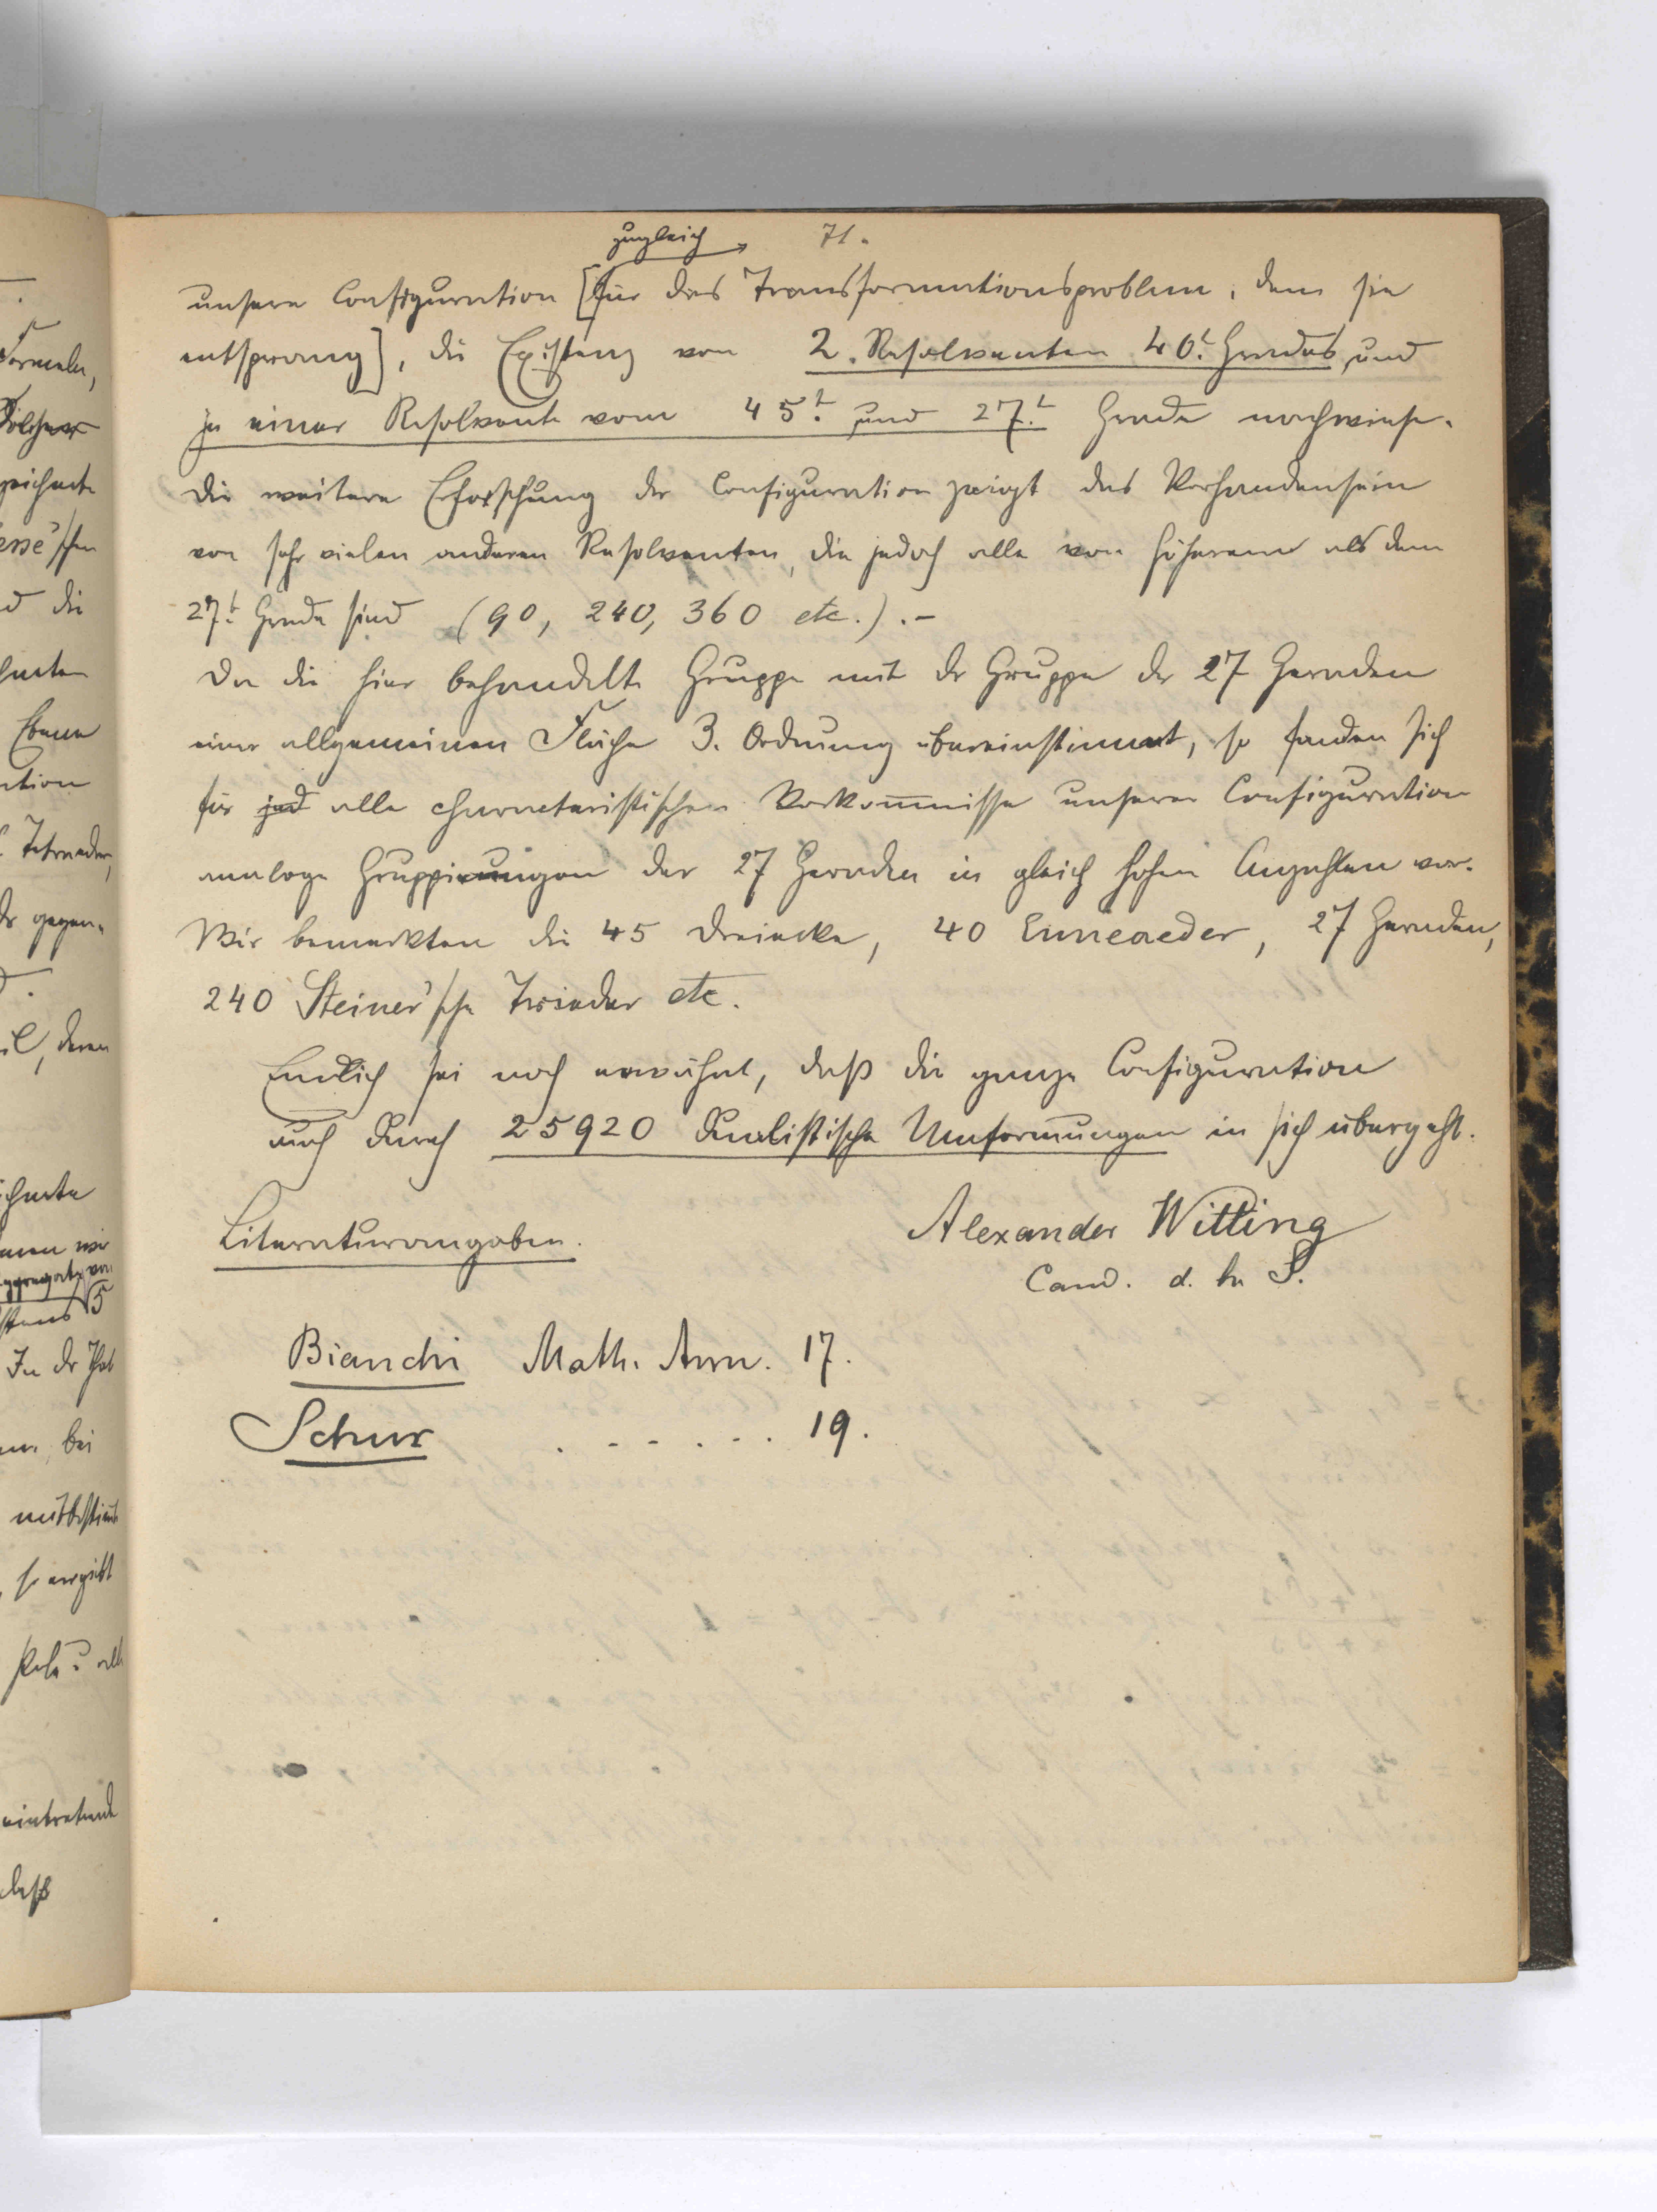 71.
zugleich
unsere Configuration [für das Transformationsproblem, dem sie
entsprang], die Existenz von 2. Resolventen 40t. Grades und
je einer Resolvente vom 45t. und 27t. Grade nachwiese.
Die weitere Erforschung der Configuration zeigt das Vorhandensein
von sehr vielen anderen Resolventen, die jedoch alle von höherem als dem
27t. Grade sind (90, 240, 360 etc.). –
Da die hier behandelte Gruppe mit der Gruppe der 27 Geraden
einer allgemeinen Fläche 3. Ordnung übereinstimmt, so fanden sich
für jed alle charakteristischen Vorkommnisse unserer Configuration
analoge Gruppirungen der 27 Geraden in gleich hohen Anzahlen vor.
Wir bemerkten die 45 Dreiecke, 40 Enneaeder, 27 Geraden,
240 Steiner'sche Trieder etc.
Endlich sei noch erwähnt, daß die ganze Configuration
auch durch 25920 dualistische Umformungen in sich übergeht.
Alexander Witting
Cand. d. h. S.
Literaturangaben.
Bianchi Math. Ann. 17.
Schur . - - . - . 19.
Formeln,
zeichnete
esse'schen
d die
Ebene
ation
Tetraeder,
dr gegen-
il, deren
In der That
bei
so ergibt
eintretende
daß